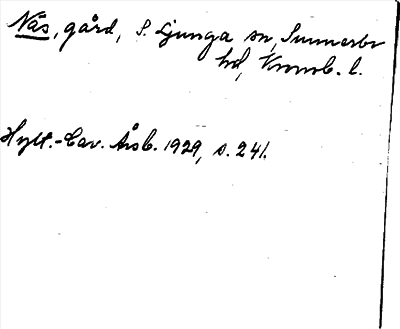 Näs, gård, S. Ljunga sn, Sunnerbo
hd, Kronob. l.
Hylt.-Cav. Årsb. 1929, s. 241.